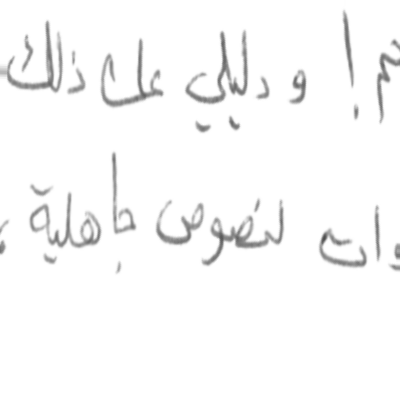 ! ودليلي على ذلك
لنصوص جاهلية